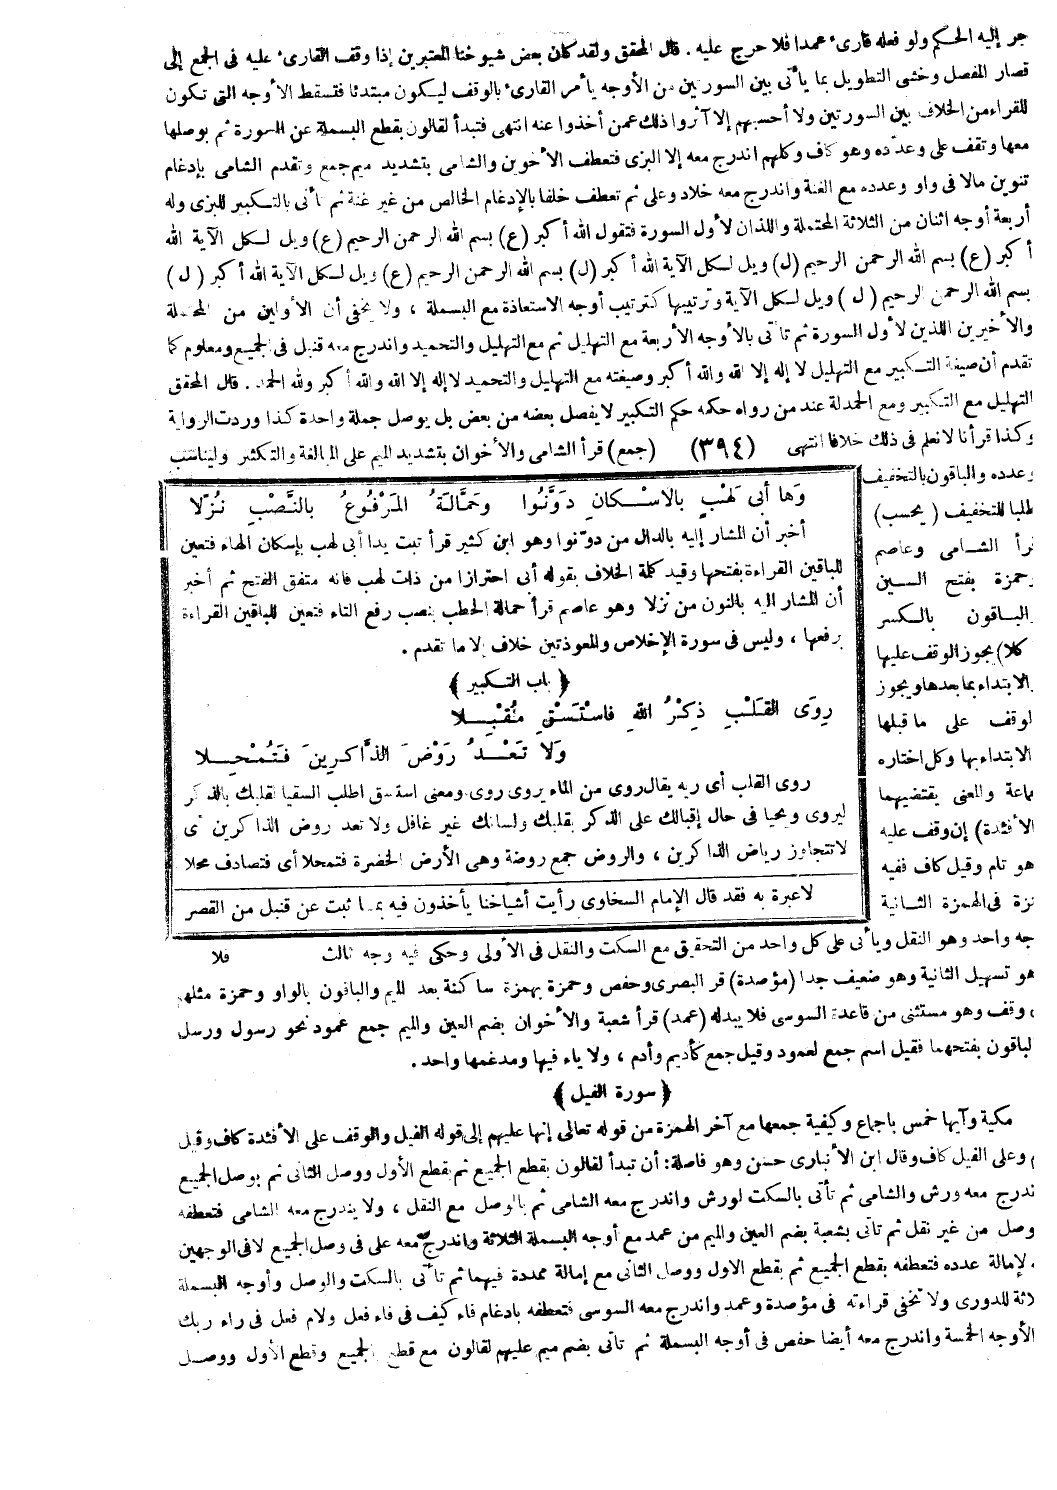 جر إليه الحكم ولو فعله قارىء عمدا فلا حرج عليه . قال المحقق ولقد كان بعض شيوخنا المعتبرين إذا وقف القارىء عليه فى الجمع إلى
قصار المفصل وخشى التطويل بما يأتى بين السورتين من الأوجه يأمر القارىء بالوقف ليكون مبتدئا فتسقط الأوجه التى تكون
للقراء من الخلاف بين السورتين ولا أحسبهم إلا آثروا ذلك عمن أخذوا عنه انتهى فتبدأ لقالون بقطع البسملة عن السورة ثم بوصلها
معها وتقف على وعدّده وهو كاف وكلهم اندرج معه إلا البزى فتعطف الأخوين والشامى بتشديد ميم جمع وتقدم الشامى بإدغام
تنوين مالا فى واو وعدده مع الغنة واندرج معه خلاد وعلى ثم تعطف خلفا بالإدغام الخالص من غير غنة ثم تأتى بالتكبير للبزى وله
أربعة أوجه اثنان من الثلاثة المحتملة واللذان لأول السورة فتقول الله أكبر (ع) بسم الله الرحمن الرحيم (ع) ويل لكل الآية الله
أكبر (ع) بسم الله الرحمن الرحيم (ل) ويل لكل الآية الله أكبر (ل) بسم الله الرحمن الرحيم (ع) ويل لكل الآية الله أكبر (ل)
بسم الله الرحمن الرحيم (ل) ويل لكل الآية وترتيبها كترتيب أوجه الاستعاذة مع البسملة ، ولا يخفى أن الأولين من المحتملة
والأخيرين اللذين لأول السورة ثم تأتى بالأوجه الأربعة مع التهليل ثم مع التهليل والتحميد واندرج معه قنبل فى الجميع ومعلوم كما
تقدم أن صيغة التكبير مع التهليل لا إله إلا الله والله أكبر وصيغته مع التهليل والتحميد لا إله إلا الله والله أكبر ولله الحمد . قال المحقق
التهليل مع التكبير ومع الحمدلة عند من رواه حكمه حكم التكبير لا يفصل بعضه من بعض بل يوصل جملة واحدة كذا وردت الرواية
وكذا قرأنا لا نعلم فى ذلك خلافا انتهى (٣٩٤) (جمع) قرأ الشامى والأخوان بتشديد الميم على المبالغة والتكثير وليناسب
وعدده والباقون بالتخفيف
طلبا للتخفيف (يحسب)
قرأ الشامى وعاصم
وحمزة بفتح السين
والباقون بالكسر
(كلا) يجوز الوقف عليها
والابتداء بما بعدها ويجوز
الوقف على ما قبلها
والابتداء بها وكل اختاره
جماعة والمعنى يقتضيهما
(الأفئدة) إن وقف عليه
وهو تام وقيل كاف ففيه
لحمزة فى الهمزة الثانية
وَها أبى لَهْبٍ بالاسْكانِ دَوَّنُوا وحَمَّالَةُ المَرْفُوعُ بالنَّصْبِ نُزِّلا
أخبر أن المشار إليه بالدال من دوّنوا وهو ابن كثير قرأ تبت يدا أبى لهب بإسكان الهاء فتعين
للباقين القراءة بفتحها وقيد كلمة الخلاف بقوله أبى احترازا من ذات لهب فانه متفق الفتح ثم أخبر
أن المشار اليه بالنون من نزلا وهو عاصم قرأ حمالة الحطب بنصب رفع التاء فتعين للباقين القراءة
برفعها ، وليس فى سورة الإخلاص والمعوذتين خلاف إلا ما تقدم .
﴿ باب التكبير ﴾
رِوَى القَلْبِ ذِكْرُ اللهِ فاسْتَسْقِ مُقْبِلا
وَلا تَعْدُ رَوْضَ الذَّاكِرِينَ فَتُمْحِلا
روى القلب أى ريه يقال روى من الماء يروى روى ومعنى استسق اطلب السقيا لقلبك بالذكر
ليروى ويحيا فى حال إقبالك على الذكر بقلبك ولسانك غير غافل ولا تعد روض الذاكرين أى
لا تتجاوز رياض الذاكرين ، والروض جمع روضة وهى الأرض الخضرة فتمحلا أى فتصادف محلا
لا عبرة به فقد قال الإمام السخاوى رأيت أشياخنا يأخذون فيه بما ثبت عن قنبل من القصر
فلا
وجه واحد وهو النقل ويأتى على كل واحد من التحقيق مع السكت والنقل فى الأولى وحكى فيه وجه ثالث
وهو تسهيل الثانية وهو ضعيف جدا (مؤصدة) قرأ البصرى وحفص وحمزة بهمزة ساكنة بعد الميم والباقون بالواو وحمزة مثلهم
وقف وهو مستثنى من قاعدة السوسى فلا يبدله (عمد) قرأ شعبة والأخوان بضم العين والميم جمع عمود نحو رسول ورسل
والباقون بفتحهما فقيل اسم جمع لعمود وقيل جمع كأديم وأدم ، ولا ياء فيها ومدغمها واحد .
﴿ سورة الفيل ﴾
مكية وآيها خمس باجماع وكيفية جمعها مع آخر الهمزة من قوله تعالى إنها عليهم إلى قوله الفيل والوقف على الأفئدة كاف وقيل
م وعلى الفيل كاف وقال ابن الأنبارى حسن وهو فاصلة: أن تبدأ لقالون بقطع الجميع ثم بقطع الأول ووصل الثانى ثم بوصل الجميع
واندرج معه ورش والشامى ثم تأتى بالسكت لورش واندرج معه الشامى ثم بالوصل مع النقل ، ولا يندرج معه الشامى فتعطفه
بالوصل من غير نقل ثم تأتى بشعبة بضم العين والميم من عمد مع أوجه البسملة الثلاثة واندرج معه على فى وصل الجميع لا فى الوجهين
لإمالة عدده فتعطفه بقطع الجميع ثم بقطع الاول ووصل الثانى مع إمالة ممددة فيهما ثم تأتى بالسكت والوصل وأوجه البسملة
الثلاثة للدورى ولا تخفى قراءته فى مؤصدة وعمد واندرج معه السوسى فتعطفه بادغام فاء كيف فى فاء فعل ولام فعل فى راء ربك
الأوجه الخمسة واندرج معه أيضا حفص فى أوجه البسملة ثم تأتى بضم ميم عليهم لقالون مع قطع الجميع وقطع الأول ووصل